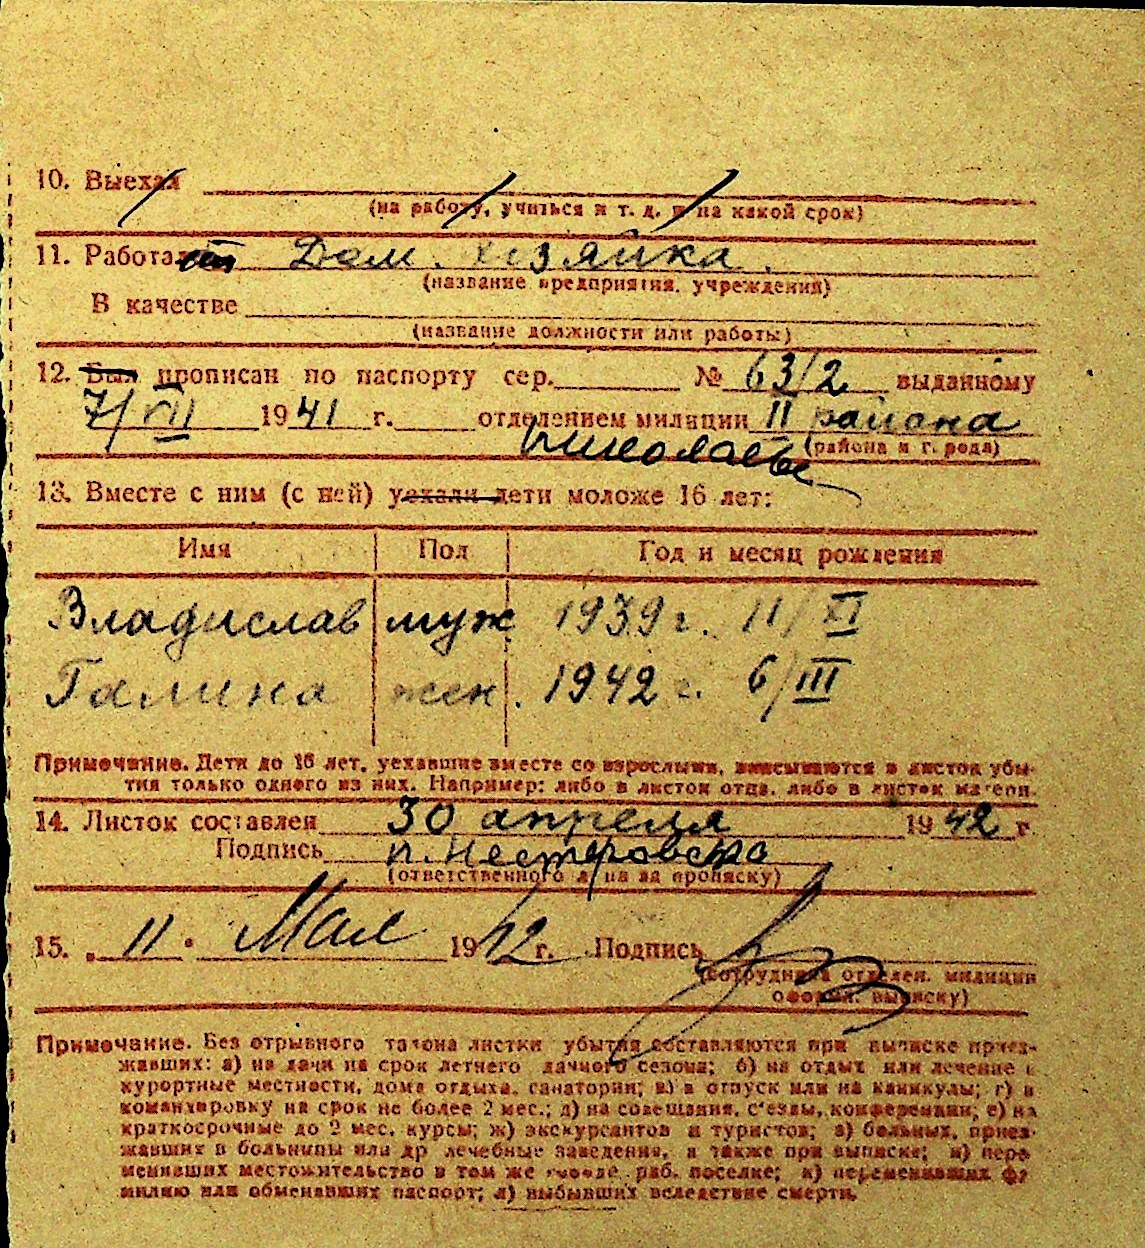 10. Выехал
(на работу, учиться и т. д. и на какой срок)
11. Работает Дом. хозяйка.
(название предприятия, учреждения)
В качестве
(название должности или работы)
12. Был прописан по паспорту сер. № 63/2 выданному
7/VII 1941 г. отделением милиции II района
(района и города)
13. Вместе с ним (с ней) уехали дети моложе 16 лет:
Имя Пол Год и месяц рождения
Владислав муж. 1939 г. 11/XI
Галина жен. 1942 г. 6/III
Примечание. Дети до 16 лет, уехавшие вместе со взрослыми, вписываются в листок убы-
тия только одного из них. Например: либо в листок отца, либо в листок матери.
14. Листок составлен 30 апреля 1942 г.
Подпись п. Нестеровска
(ответственного лица за прописку)
15. „11" Мая 1942 г. Подпись
(сотрудника отделен. милиции
оформ. выписку)
Примечание. Без отрывного талона листки убытия составляются при выписке приез-
жавших: а) на дачи на срок летнего дачного сезона; б) на отдых или лечение в
курортные местности, дома отдыха, санатории; в) в отпуск или на каникулы; г) в
командировку на срок не более 2 мес.; д) на совещания, с'езды, конференции; е) на
краткосрочные до 2 мес. курсы; ж) экскурсантов и туристов; з) больных, приез-
жавших в больницы или др лечебные заведения, а также при выписке; и) пере-
менивших местожительство в том же городе, раб. поселке; к) переменивших фа-
милию или обменявших паспорт; л) выбывших вследствие смерти.